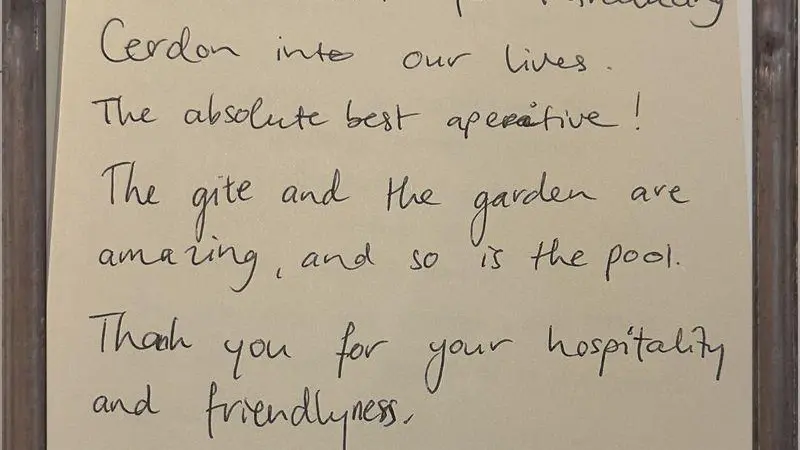 Cerdon into our lives.
The absolute best aperitive!
The gite and the garden are
amazing, and so is the pool.
Thank you for your hospitality
and friendlyness.